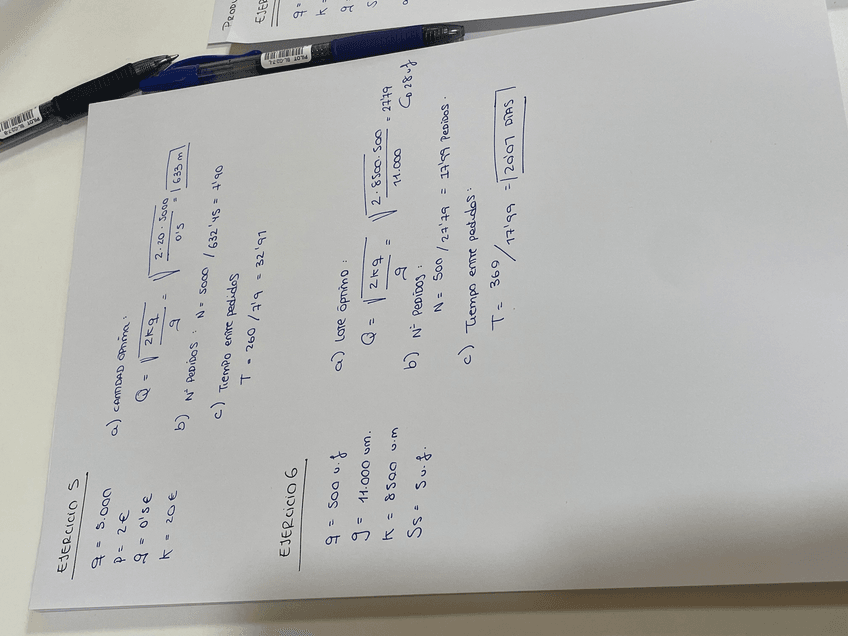 PRODU
EJER
q =
K =
g =
PILOT BL-G2-7
PILOT BL-G2-7
EJERCICIO 5
q = 5.000
P = 2€
g = 0'5€
K = 20€
a) CANTIDAD ÓPTIMA:
Q = √2Kq/g = √2·20·5000/0'5 = 633 m
b) Nº PEDIDOS: N = 5000 / 632'45 = 7'90
c) Tiempo entre pedidos
T = 260 / 7'9 = 32'91
EJERCICIO 6
q = 500 u.f
g = 11.000 um.
K = 8500 u.m
SS = 5 u.f.
a) LOTE ÓPTIMO:
Q = √2Kq/g = √2·8500·500/11.000 = 27'79
↳ 28 uf
b) Nº PEDIDOS:
N = 500 / 27'79 = 17'99 PEDIDOS.
c) Tiempo entre pedidos:
T = 360 / 17'99 = 20'01 DÍAS